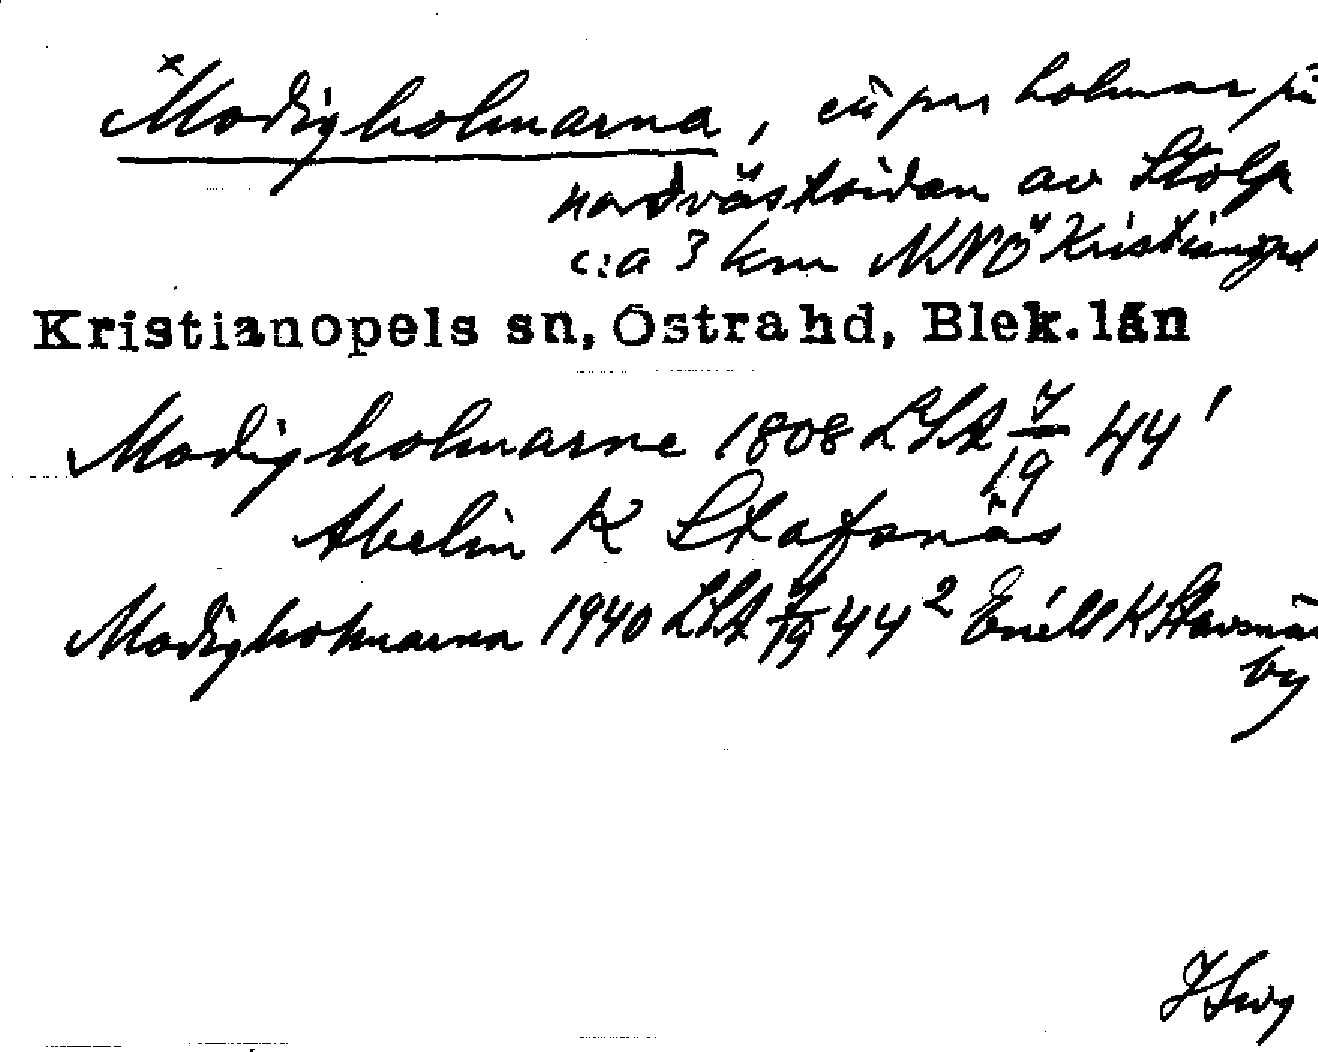 × Modigholmarna, ett par holmar på
nordvästsidan av Stolpa
c:a 3 km NNÖ Kristianopel
Kristianopels sn, Östra hd, Blek. län
Modigholmarne 1808 LSA 7/19 44¹
Abelin K Stafsnäs
Modigholmarna 1940 LSA 7/19 44² Enéll K Stavsnäs
by